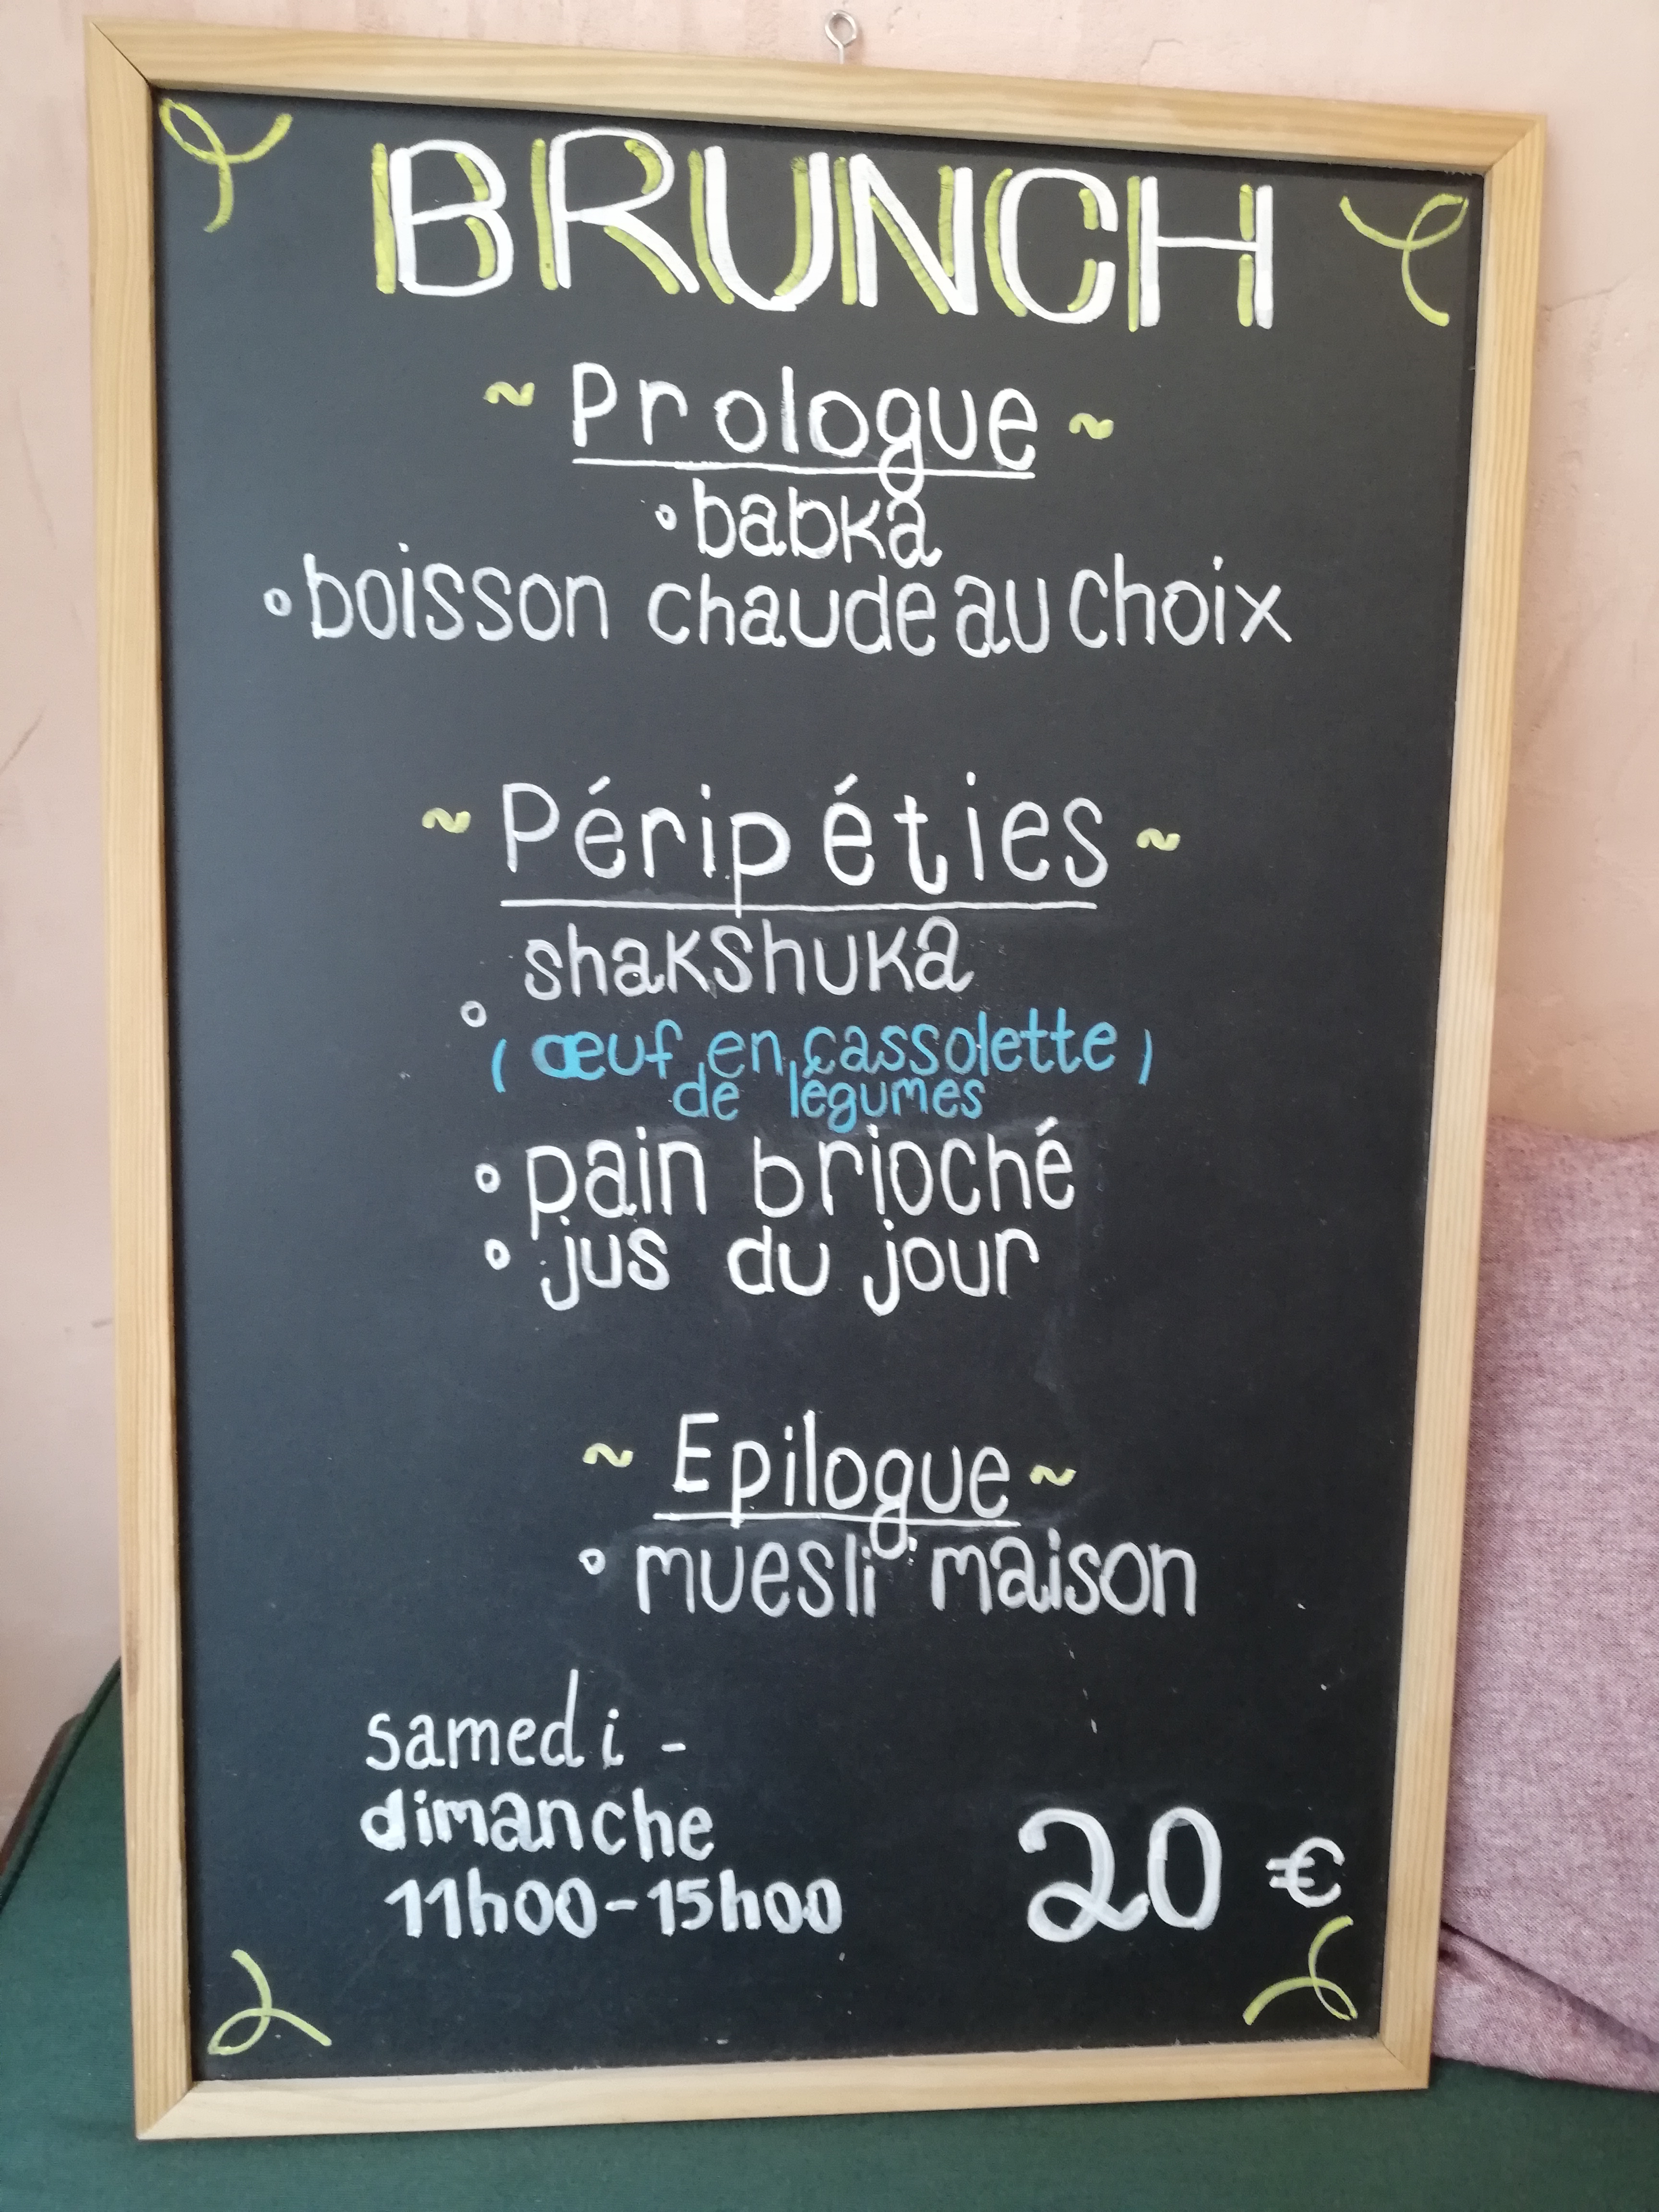 BRUNCH
~ Prologue ~
° babka
° boisson chaude au choix
~ Péripéties ~
° shakshuka
( œuf en cassolette )
de légumes
° pain brioché
° jus du jour
~ Epilogue ~
° muesli maison
samedi -
dimanche
11h00-15h00
20 €